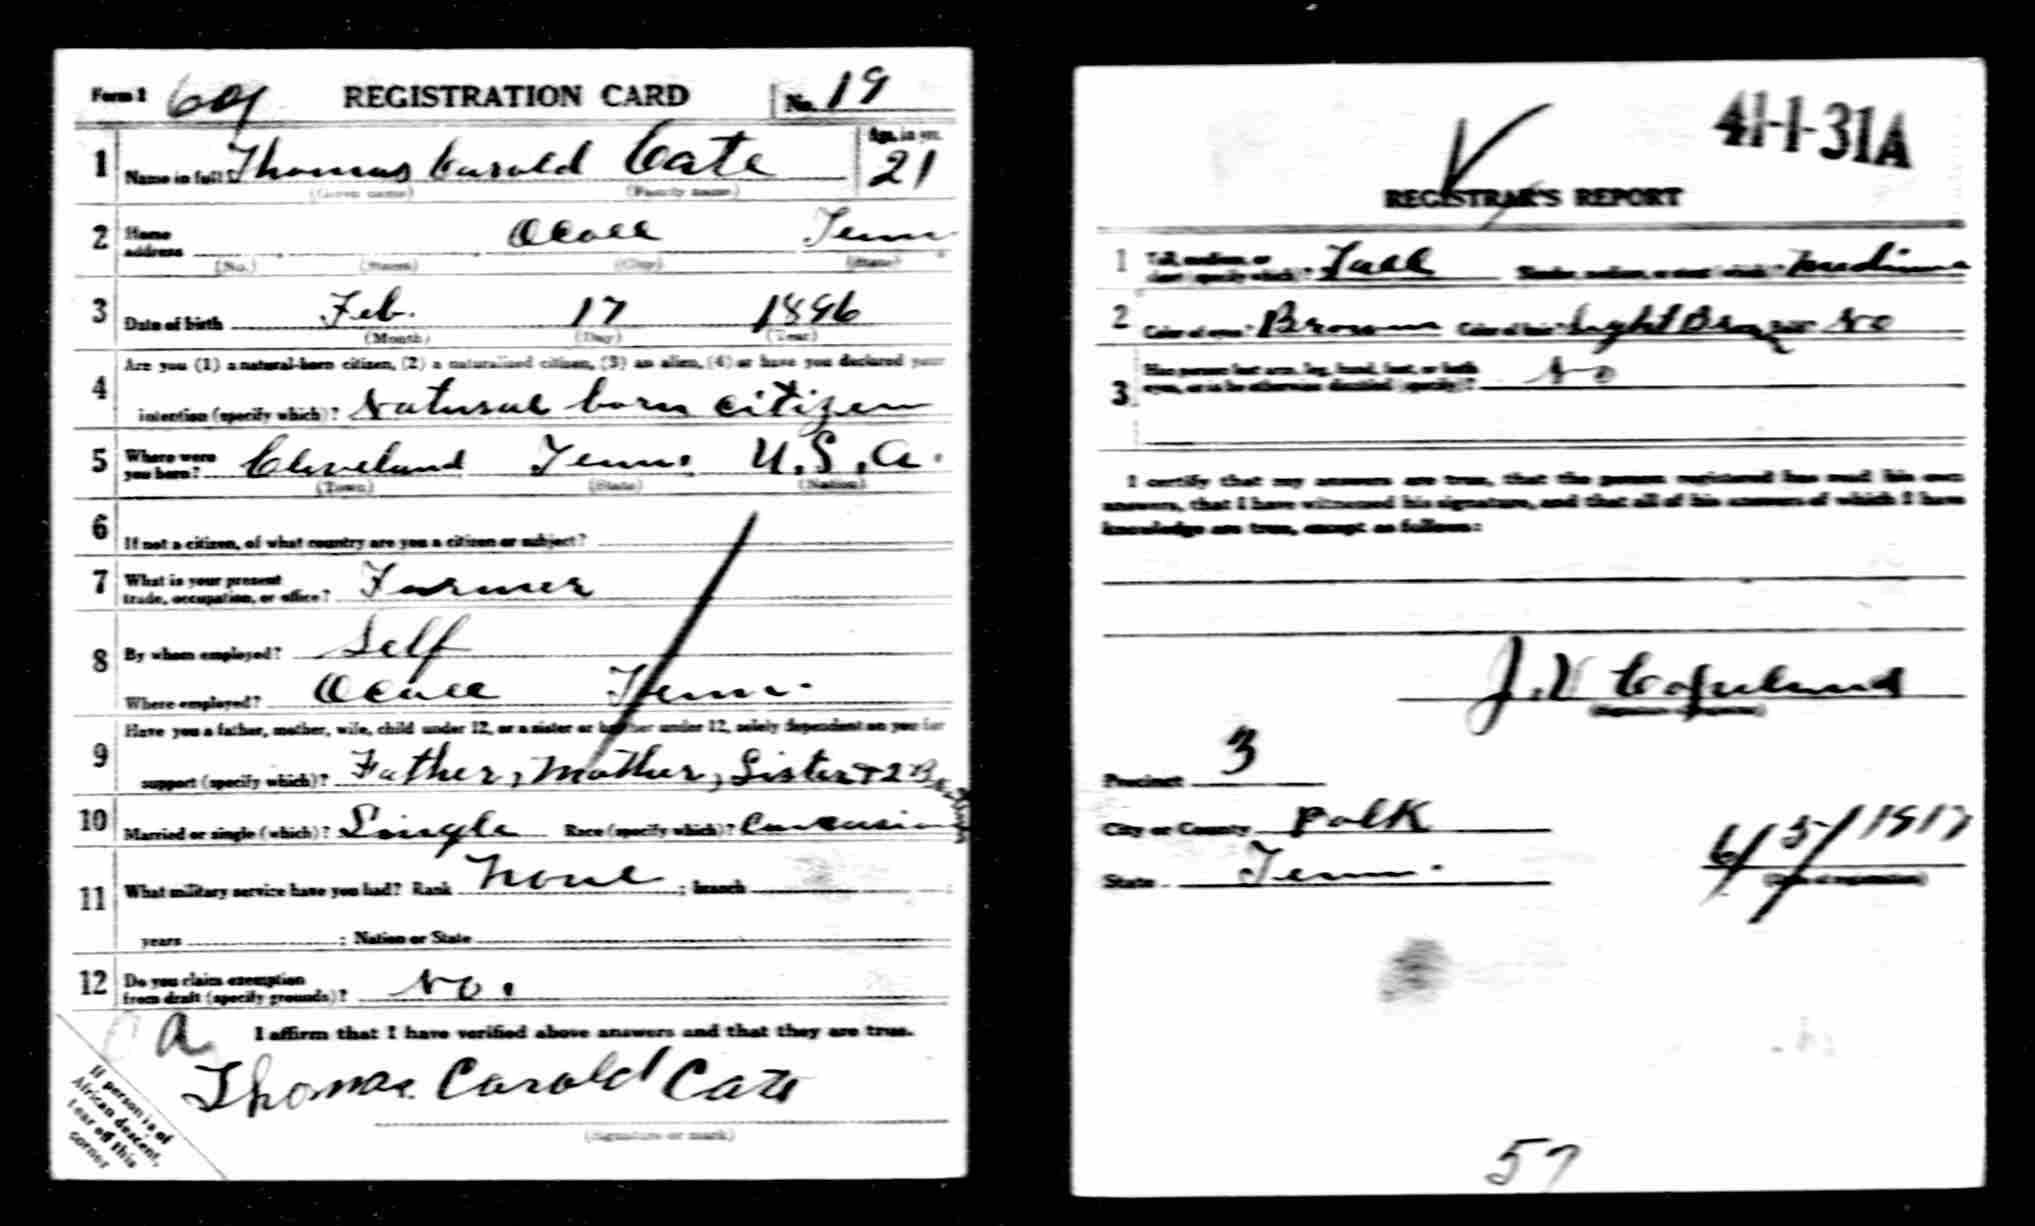 Form 1 609 REGISTRATION CARD No. 19
1 Name in full Thomas Carold Cate Age, in yrs. 21
(Given name) (Family name)
2 Home address Ocoee Tenn
(No.) (Street) (City) (State)
3 Date of birth Feb. 17 1896
(Month) (Day) (Year)
4 Are you (1) a natural-born citizen, (2) a naturalized citizen, (3) an alien, (4) or have you declared your
intention (specify which)? Natural born citizen
5 Where were you born? Cleveland Tenn. U.S.A.
(Town) (State) (Nation)
6 If not a citizen, of what country are you a citizen or subject?
7 What is your present trade, occupation, or office? Farmer
8 By whom employed? Self
Where employed? Ocoee Tenn.
9 Have you a father, mother, wife, child under 12, or a sister or brother under 12, solely dependent on you for
support (specify which)? Father, Mother, Sister + 2 Brothers
10 Married or single (which)? Single Race (specify which)? Caucasian
11 What military service have you had? Rank None ; branch
years ; Nation or State
12 Do you claim exemption from draft (specify grounds)? No.
a
I affirm that I have verified above answers and that they are true.
Thomas Carold Cate
(Signature or mark)
If person is of
African descent,
tear off this
corner
41-1-31A
REGISTRAR'S REPORT
1 Tall, medium, or short (specify which)? Tall Slender, medium, or stout (which)? Medium
2 Color of eyes? Brown Color of hair? Light Brown No
3 Has person lost arm, leg, hand, foot, or both
eyes, or is he otherwise disabled (specify)? No
I certify that my answers are true, that the person registered has read his own
answers, that I have witnessed his signature, and that all of his answers of which I have
knowledge are true, except as follows:
J. V Copeland
(Signature of registrar)
Precinct 3
City or County Polk
State Tenn. 6/5/1917
(Date of registration)
57